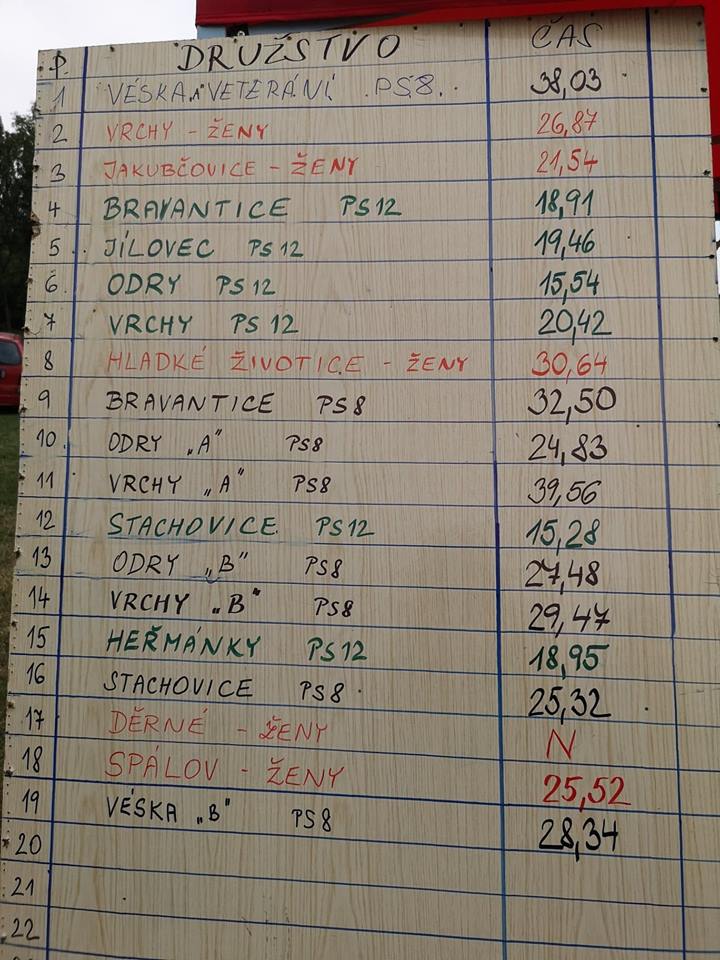 P. DRUŽSTVO ČAS
1 VÉSKA „A" VETERÁNI PS8. 38,03
2 VRCHY - ŽENY 26,87
3 JAKUBČOVICE - ŽENY 21,54
4 BRAVANTICE PS12 18,91
5 JÍLOVEC PS12 19,46
6 ODRY PS12 15,54
7 VRCHY PS12 20,42
8 HLADKÉ ŽIVOTICE - ŽENY 30,64
9 BRAVANTICE PS8 32,50
10 ODRY „A" PS8 24,83
11 VRCHY „A" PS8 39,56
12 STACHOVICE PS12 15,28
13 ODRY „B" PS8 27,48
14 VRCHY „B" PS8 29,47
15 HEŘMÁNKY PS12 18,95
16 STACHOVICE PS8 25,32
17 DĚRNÉ - ŽENY N
18 SPÁLOV - ŽENY 25,52
19 VÉSKA „B" PS8 28,34
20
21
22